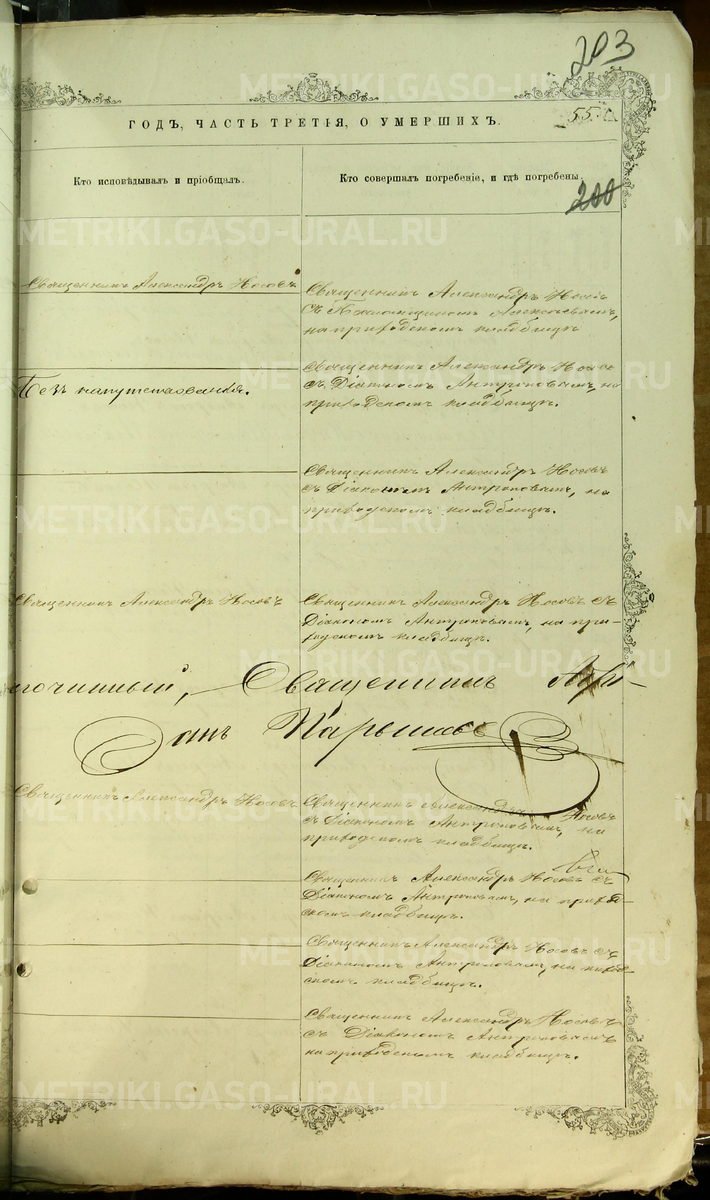 203
ГОДЪ, ЧАСТЬ ТРЕТІЯ, О УМЕРШИХЪ.
55.
Кто исповѣдывалъ и пріобщалъ.
Кто совершалъ погребеніе, и гдѣ погребены.
200
Священникъ Александръ Носовъ
Священникъ Александръ Носовъ
на приходскомъ кладбищѣ
Безъ напутствованія.
Священникъ Александръ Носовъ
съ Діакономъ Антроповымъ, на
приходскомъ кладбищѣ.
Священникъ Александръ Носовъ
съ Діакономъ Антроповымъ, на
приходскомъ кладбищѣ.
Священникъ Александръ Носовъ
Священникъ Александръ Носовъ съ
Діакономъ Антроповымъ, на при-
ходскомъ кладбищѣ.
гочинный, Священникъ
Священникъ Александръ Носовъ
Священникъ Александръ Носовъ
съ Діакономъ Антроповымъ, на
приходскомъ кладбищѣ.
Священникъ Александръ Носовъ съ
Діакономъ Антроповымъ, на приход-
скомъ кладбищѣ.
Священникъ Александръ Носовъ съ
Діакономъ Антроповымъ, на
скомъ кладбищѣ.
Священникъ Александръ Носовъ
съ Діакономъ Антроповымъ
на приходскомъ кладбищѣ.
METRIKI.GASO-URAL.RU